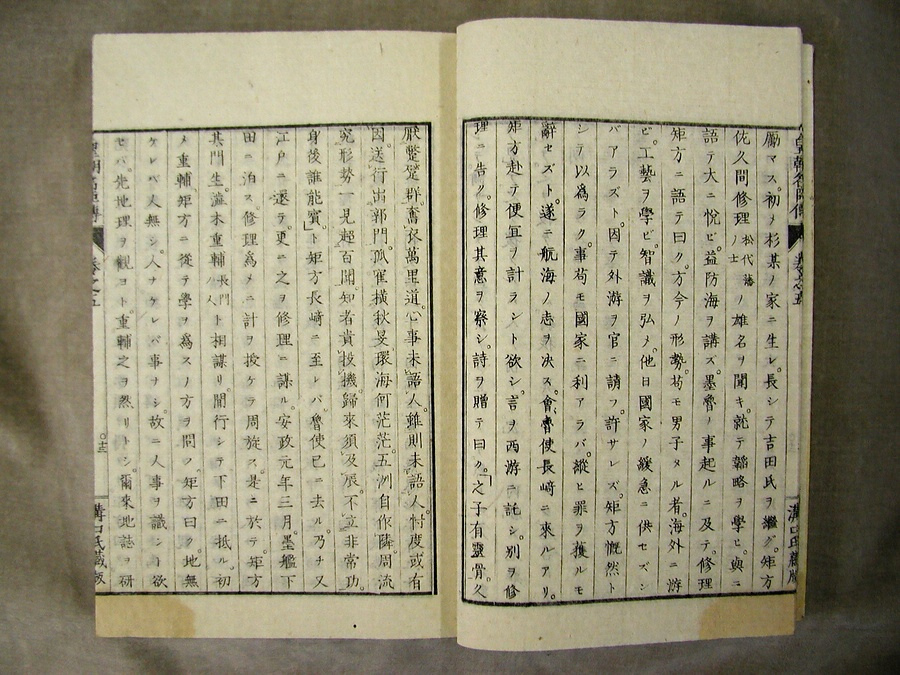 勵マス。初メ杉某ノ家ニ生レ。長シテ吉田氏ヲ繼グ。矩方
佐久間修理松代藩ノ士ノ雄名ヲ聞キ。就テ韜略ヲ學ビ。與ニ
語テ大ニ悦ビ。益防海ヲ講ズ。墨魯ノ事起ルニ及テ。修理
矩方ニ語テ曰ク。方今ノ形勢。苟モ男子タル者。海外ニ游
ビ。工藝ヲ學ビ。智識ヲ弘メ。他日國家ノ緩急ニ供セズンシ
バアラズト。因テ外游ヲ官ニ請フ。許サレズ。矩方慨然ト
シテ以為ラク。事苟モ國家ニ利アラバ。縱ヒ罪ヲ獲ルモ
辭セズト。遂ニ航海ノ志ヲ决ス。會魯使長崎ニ來ルアリ。
矩方赴テ便宜ヲ計ラント欲シ。言ヲ西游ニ託シ。別ヲ修
理ニ告グ。修理其意ヲ察シ。詩ヲ贈テ曰ク。「之子有靈骨。久
厭蹩躄群。奮衣萬里道。心事未語人。雖則未語人。忖度或有
因。送行出郭門。孤隺横秋旻。環海何茫茫。五洲自作隣。周流
究形勢。一見超百聞。知者貴投機。歸來須及辰。不立非常功。
身後誰能賓」ト矩方長崎ニ至レバ。魯使已ニ去ル。乃チ又
江戸ニ還テ。更ニ之ヲ修理ニ謀ル。安政元年三月。墨艦下
田ニ泊ス。修理爲メニ計ヲ授ケテ周旋ス。是ニ於テ矩方
其門生。澁木重輔長門ノ人ト相謀リ。間行シテ下田ニ抵ル。初
メ重輔。矩方ニ從テ學ヲ爲スノ方ヲ問フ。矩方曰ク。地無
ケレバ人無シ。人ナケレバ事ヲシ。故ニ人事ヲ識ンコト欲
セバ。先地理ヲ觀ヨト。重輔之ヲ然リトシ。爾來地誌ヲ研
巻之五
〇十三
溝口氏藏版